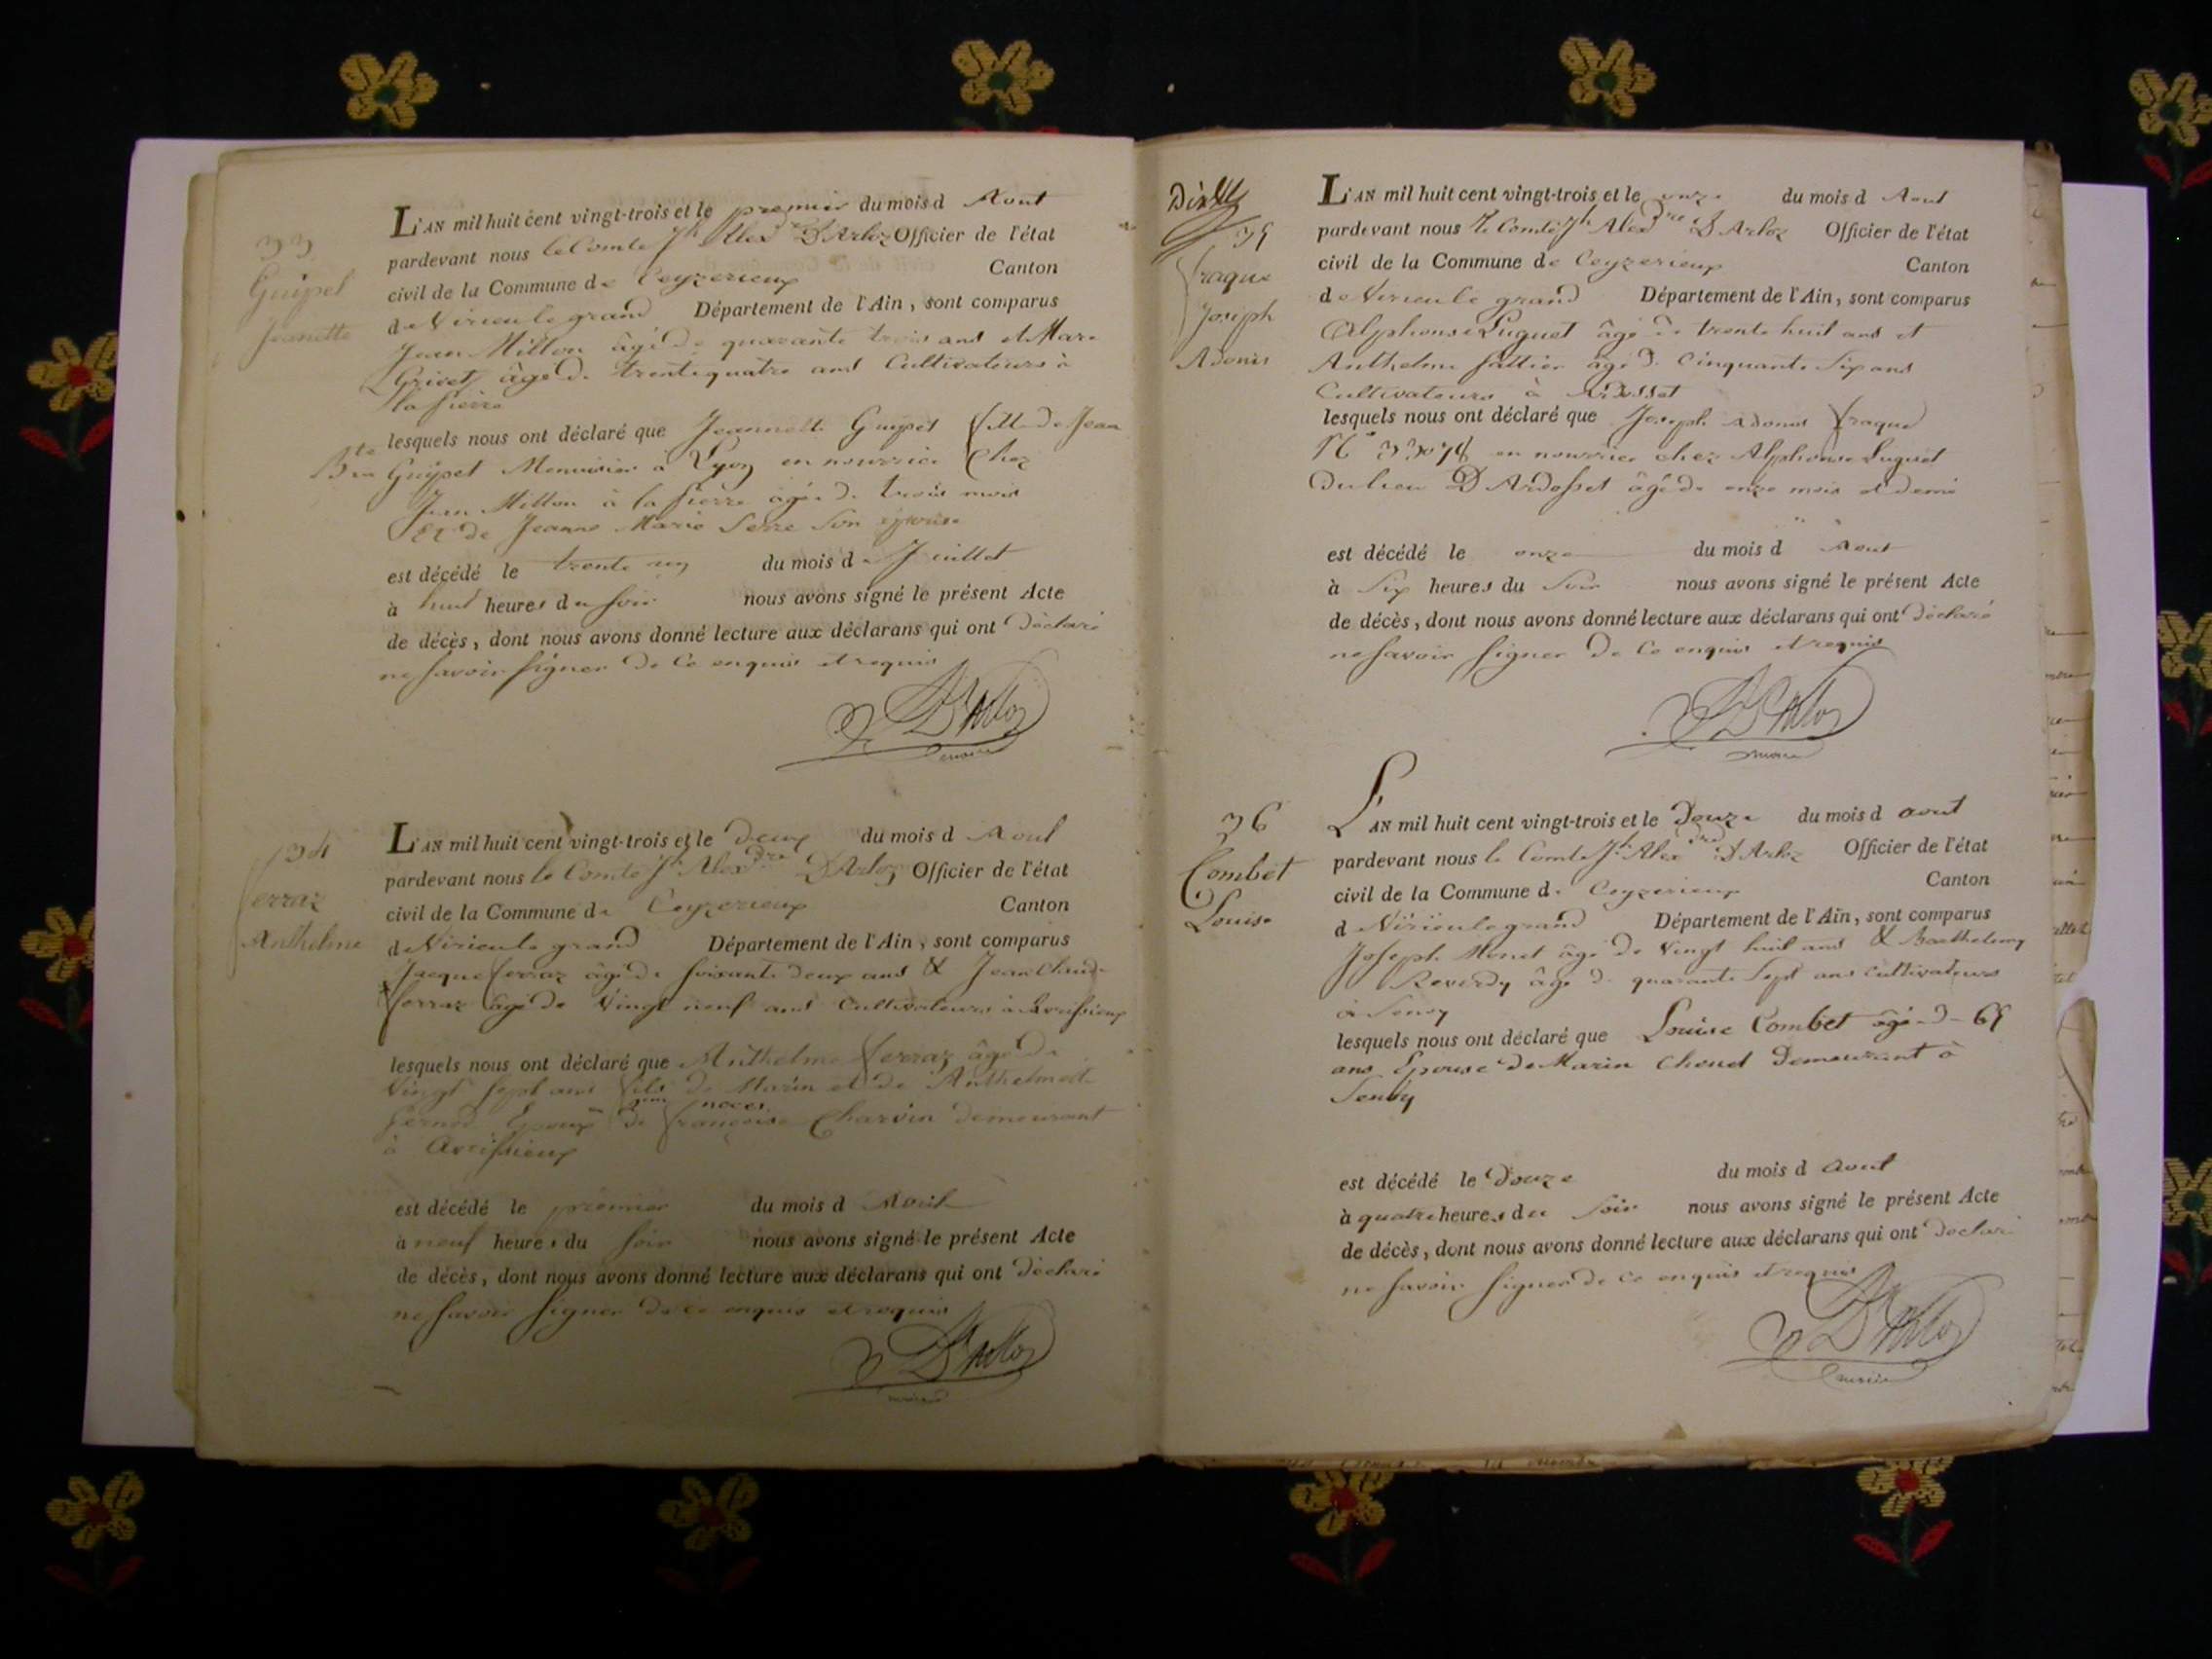 33
Guÿpet
Jeanette
L'AN mil huit cent vingt-trois et le premier du mois d Aout
pardevant nous le Comte Jh Alexdre D'Arloz Officier de l'état
civil de la Commune de Ceyzerieux Canton
de Virieu le grand Département de l'Ain, sont comparus
Jean Millon âgé de quarante trois ans et Marc
Grivet âgé de trente quatre ans Cultivateurs à
la
lesquels nous ont déclaré que Jeannette Guÿpet fille de Jean
Bte Guÿpet Menuisier a Lyon en nourrice Chez
Jean Millon à la âgée de trois mois
Et de Jeanne Marie Serre son épouse
est décédé le trente un du mois de Juillet
à huit heures du soir nous avons signé le présent Acte
de décès, dont nous avons donné lecture aux déclarans qui ont déclaré
ne savoir signer de ce enquis et requis
D'Arloz
maire
34
ferraz
Anthelme
L'AN mil huit cent vingt-trois et le deux du mois d Aout
pardevant nous le Comte Jh Alexdre D'Arloz Officier de l'état
civil de la Commune de Ceyzerieux Canton
de Virieu le grand Département de l'Ain, sont comparus
Jacque ferraz âgé de soixante deux ans & Jean Claude
ferraz âgé de vingt neuf ans Cultivateurs à Avrissieux
lesquels nous ont déclaré que Anthelme ferraz âgé de
vingt sept ans fils de Marin et de Anthelmette
Epoux de françoise Charvin demeurant
noces
à Avrissieux
est décédé le premier du mois d Aout
à neuf heures du soir nous avons signé le présent Acte
de décès, dont nous avons donné lecture aux déclarans qui ont déclaré
ne savoir signer de ce enquis et requis
D'Arloz
maire
35
fraque
Joseph
Adonis
L'AN mil huit cent vingt-trois et le onze du mois d Aout
pardevant nous le Comte Jh Alexdre D'Arloz Officier de l'état
civil de la Commune de Ceyzerieux Canton
de Virieu le grand Département de l'Ain, sont comparus
Alphonse Luguet âgé de trente huit ans et
Anthelme âgé de Cinquante Six ans
Cultivateurs à Ardosset
lesquels nous ont déclaré que Joseph adonis fraque
en nourrice chez Alphonse Luguet
du lieu D'Ardosset âgé de onze mois et demi
est décédé le onze du mois d Aout
à Six heures du Soir nous avons signé le présent Acte
de décès, dont nous avons donné lecture aux déclarans qui ont déclaré
ne savoir signer de ce enquis et requis
D'Arloz
maire
36
Combet
Louise
L'AN mil huit cent vingt-trois et le Douze du mois d aout
pardevant nous le Comte Jh Alexdre D'Arloz Officier de l'état
civil de la Commune de Ceyzerieux Canton
d Virieu le grand Département de l'Ain, sont comparus
Joseph Monet âgé de vingt huit ans & Barthelemy
Reverdy âgé de quarante Sept ans cultivateurs
à
lesquels nous ont déclaré que Louise Combet âgée de 65
ans Epouse de Marin Chenet demeurant à
est décédé le Douze du mois d aout
à quatre heures du Soir nous avons signé le présent Acte
de décès, dont nous avons donné lecture aux déclarans qui ont déclaré
ne savoir signer de ce enquis et requis
D'Arloz
maire